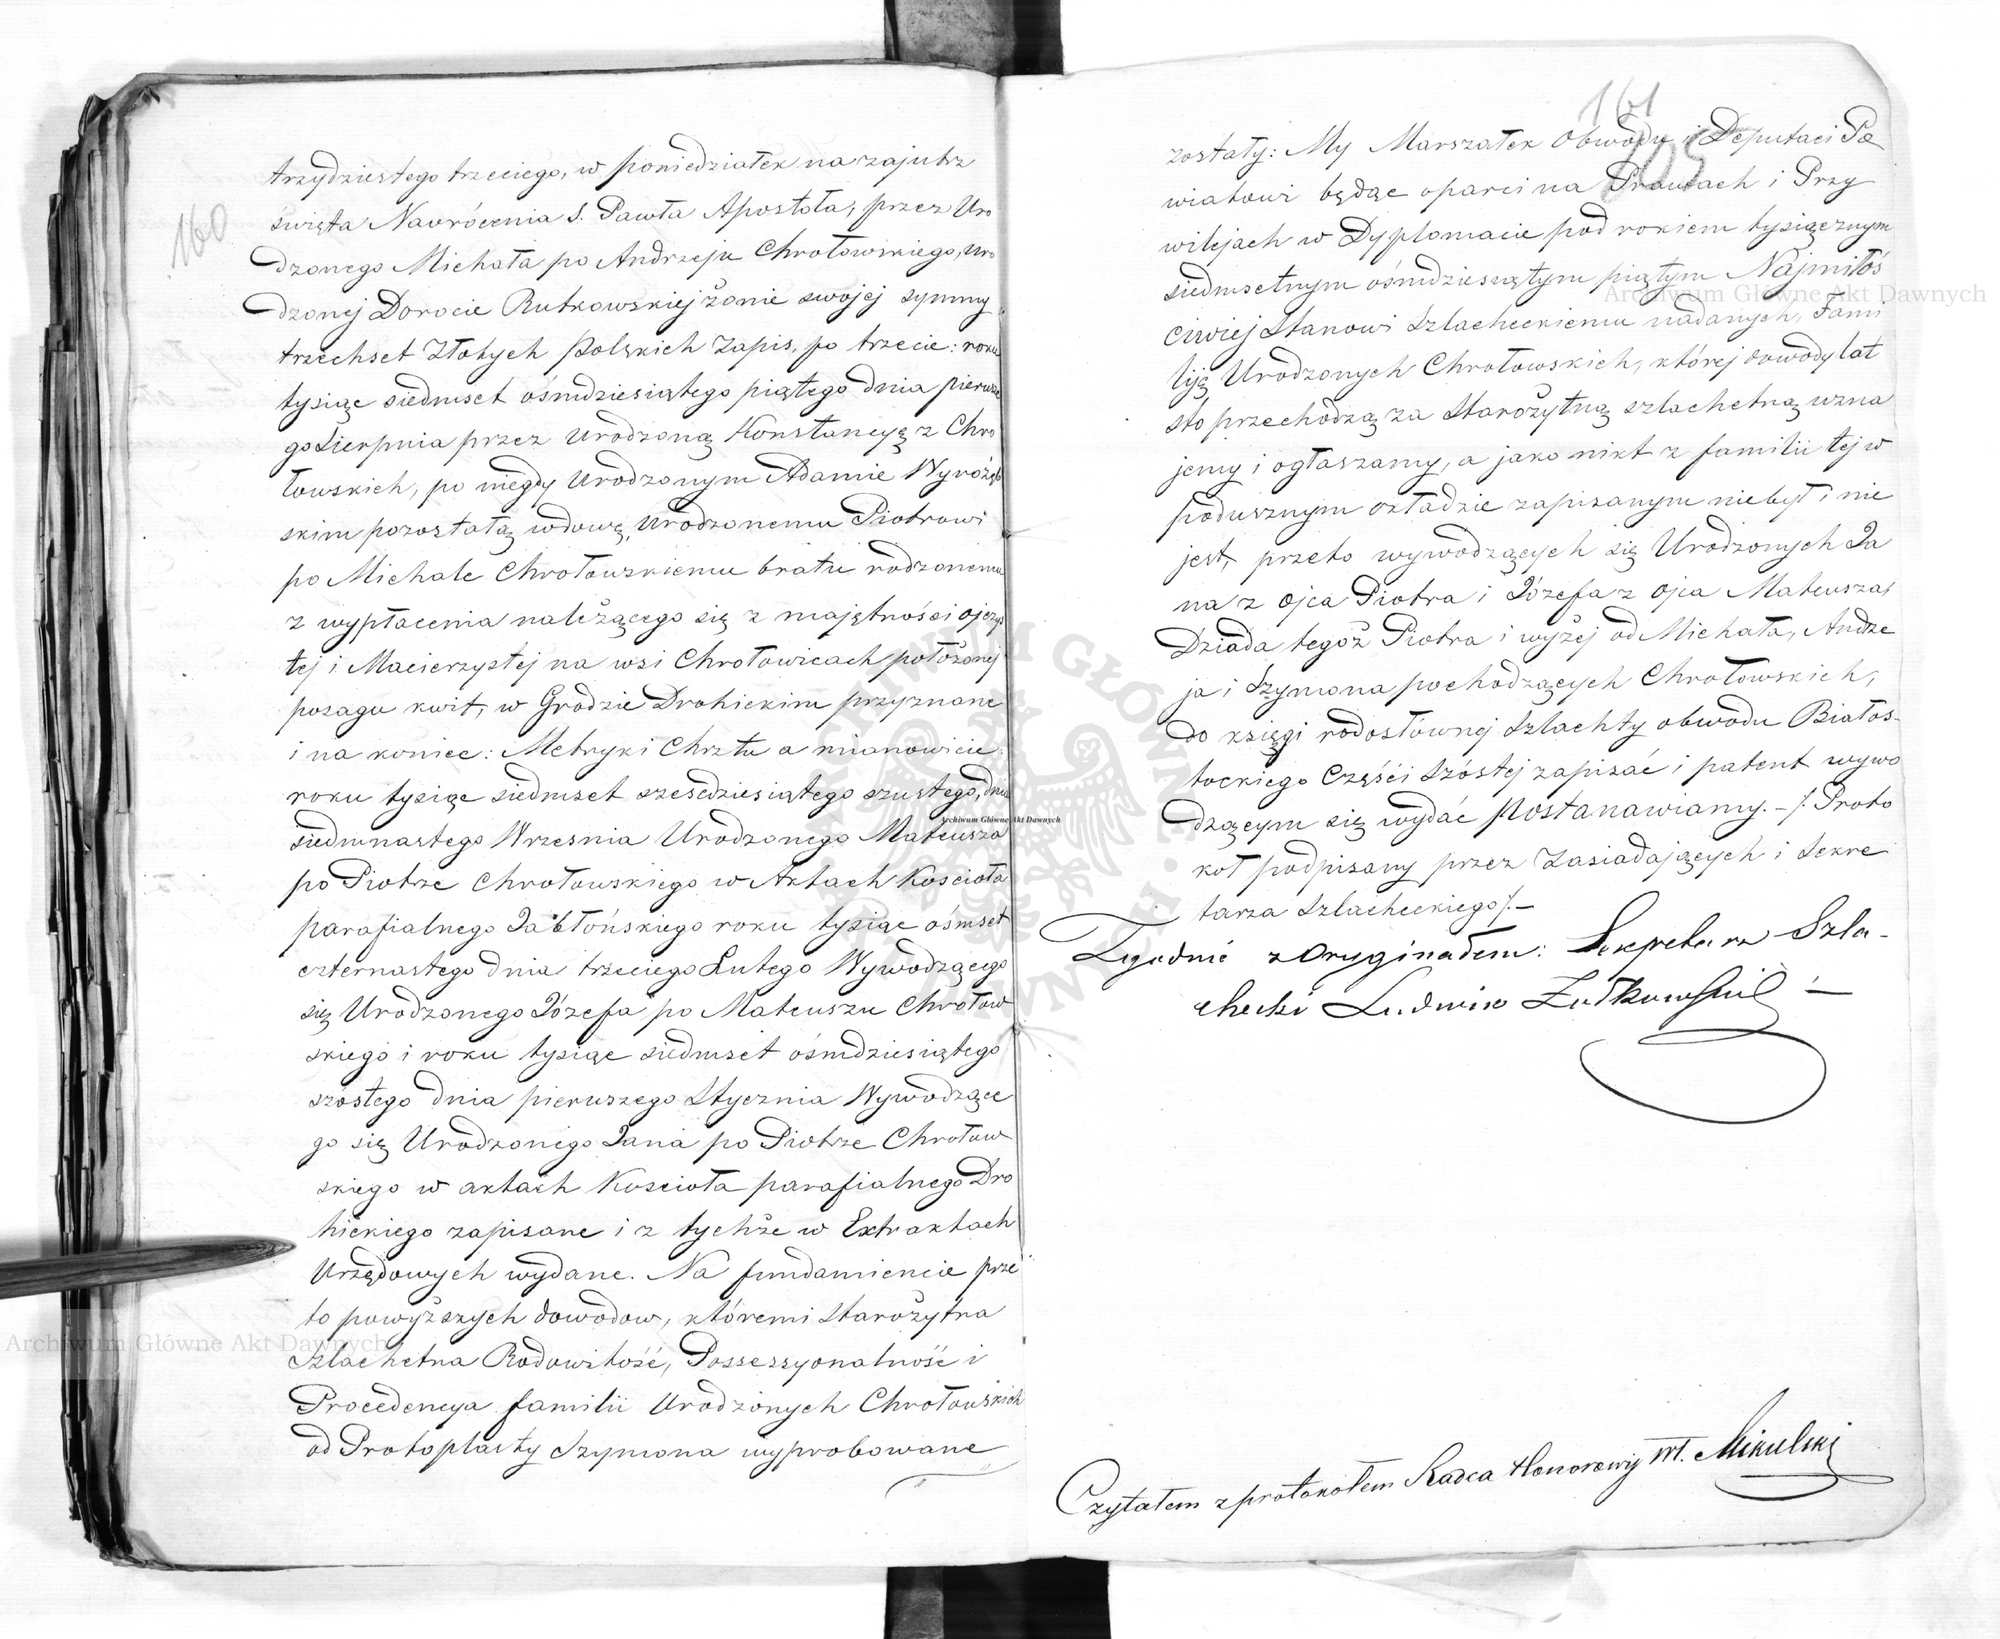 160
trzydziestego trzeciego, w poniedziałek na zajutrz
święta Nawrócenia S. Pawła Apostoła, przez Uro
dzonego Michała po Andrzeju Chrołowskiego, Uro
dzonej Dorocie Rutkowskiej żonie swojej summy
trzechset Złotych polskich zapis, po trzecie: roku
tysiąc siedmset ośmdziesiątego piątego dnia pierwsze
go Sierpnia przez Urodzoną Konstancyę z Chro
łowskich, po niegdy Urodzonym Adamie Wyrozęb
skim pozostałą wdowę, Urodzonemu Piotrowi
po Michale Chrołowskiemu bratu rodzonemu
z wypłacenia należącego się z majętności ojczys
tej i Macierzystej na wsi Chrołowicach położonej
posagu kwit, w Grodzie Drohickim przyznane
i na koniec: Metryki Chrztu a mianowicie:
roku tysiąc siedmset sześćdziesiątego szustego, dnia
siedmnastego Września Urodzonego Mateusza
po Piotrze Chrołowskiego w Aktach Kościoła
parafialnego Jabłońskiego roku tysiąc ośmset
czternastego dnia trzeciego Lutego Wywodzącego
się Urodzonego Józefa po Mateuszu Chrołow
skiego i roku tysiąc siedmset ośmdziesiątego
szóstego dnia pierwszego Stycznia Wywodzące
go się Urodzonego Jana po Piotrze Chrołow
skiego w aktach Kościoła parafialnego Dro
hickiego zapisane i z tychże w Extraktach
Urzędowych wydane. Na fundamencie prze
to powyższych dowodow, któremi Starożytna
Szlachetna Rodowitość, Possessyonalność i
Procedencya familii Urodzonych Chrołowskich
od Protoplasty Szymona wyprobowane
161
zostały: My Marszałek Obwodu i Deputaci Po
wiatowi będąc oparci na Prawach i Przy
wilejach w Dyplomacie pod rokiem tysiącznym
siedmsetnym ośmdziesiątym piątym Najmiłoś
ciwiej Stanowi Szlacheckiemu nadanych, Fami
liję Urodzonych Chrołowskich, której dowody lat
sto przechodzą za Starożytną szlachetną uzna
jemy i ogłaszamy, a jako nikt z familii tej w
podusznym okładzie zapisanym niebył i nie
jest, przeto wywodzących się Urodzonych Ja
na z ojca Piotra i Józefa z ojca Mateusza,
Dziada tegoż Piotra i wyżej od Michała, Andrze
ja i Szymona pochodzących Chrołowskich,
do księgi rodosłównej Szlachty obwodu Białos-
tockiego Części Szóstej zapisać i patent wywo
dzącym się wydać Postanawiamy. – /: Proto
kół podpisany przez Zasiadających i Sekre
tarza Szlacheckiego /: –
Zgodnie z Oryginałem: Sekretarz Szla-
checki Ludwik Żułkowski –
Czytałem z protokołem Radca Honorowy M. Mikulski
Archiwum Główne Akt Dawnych
Archiwum Główne Akt Dawnych
Archiwum Główne Akt Dawnych